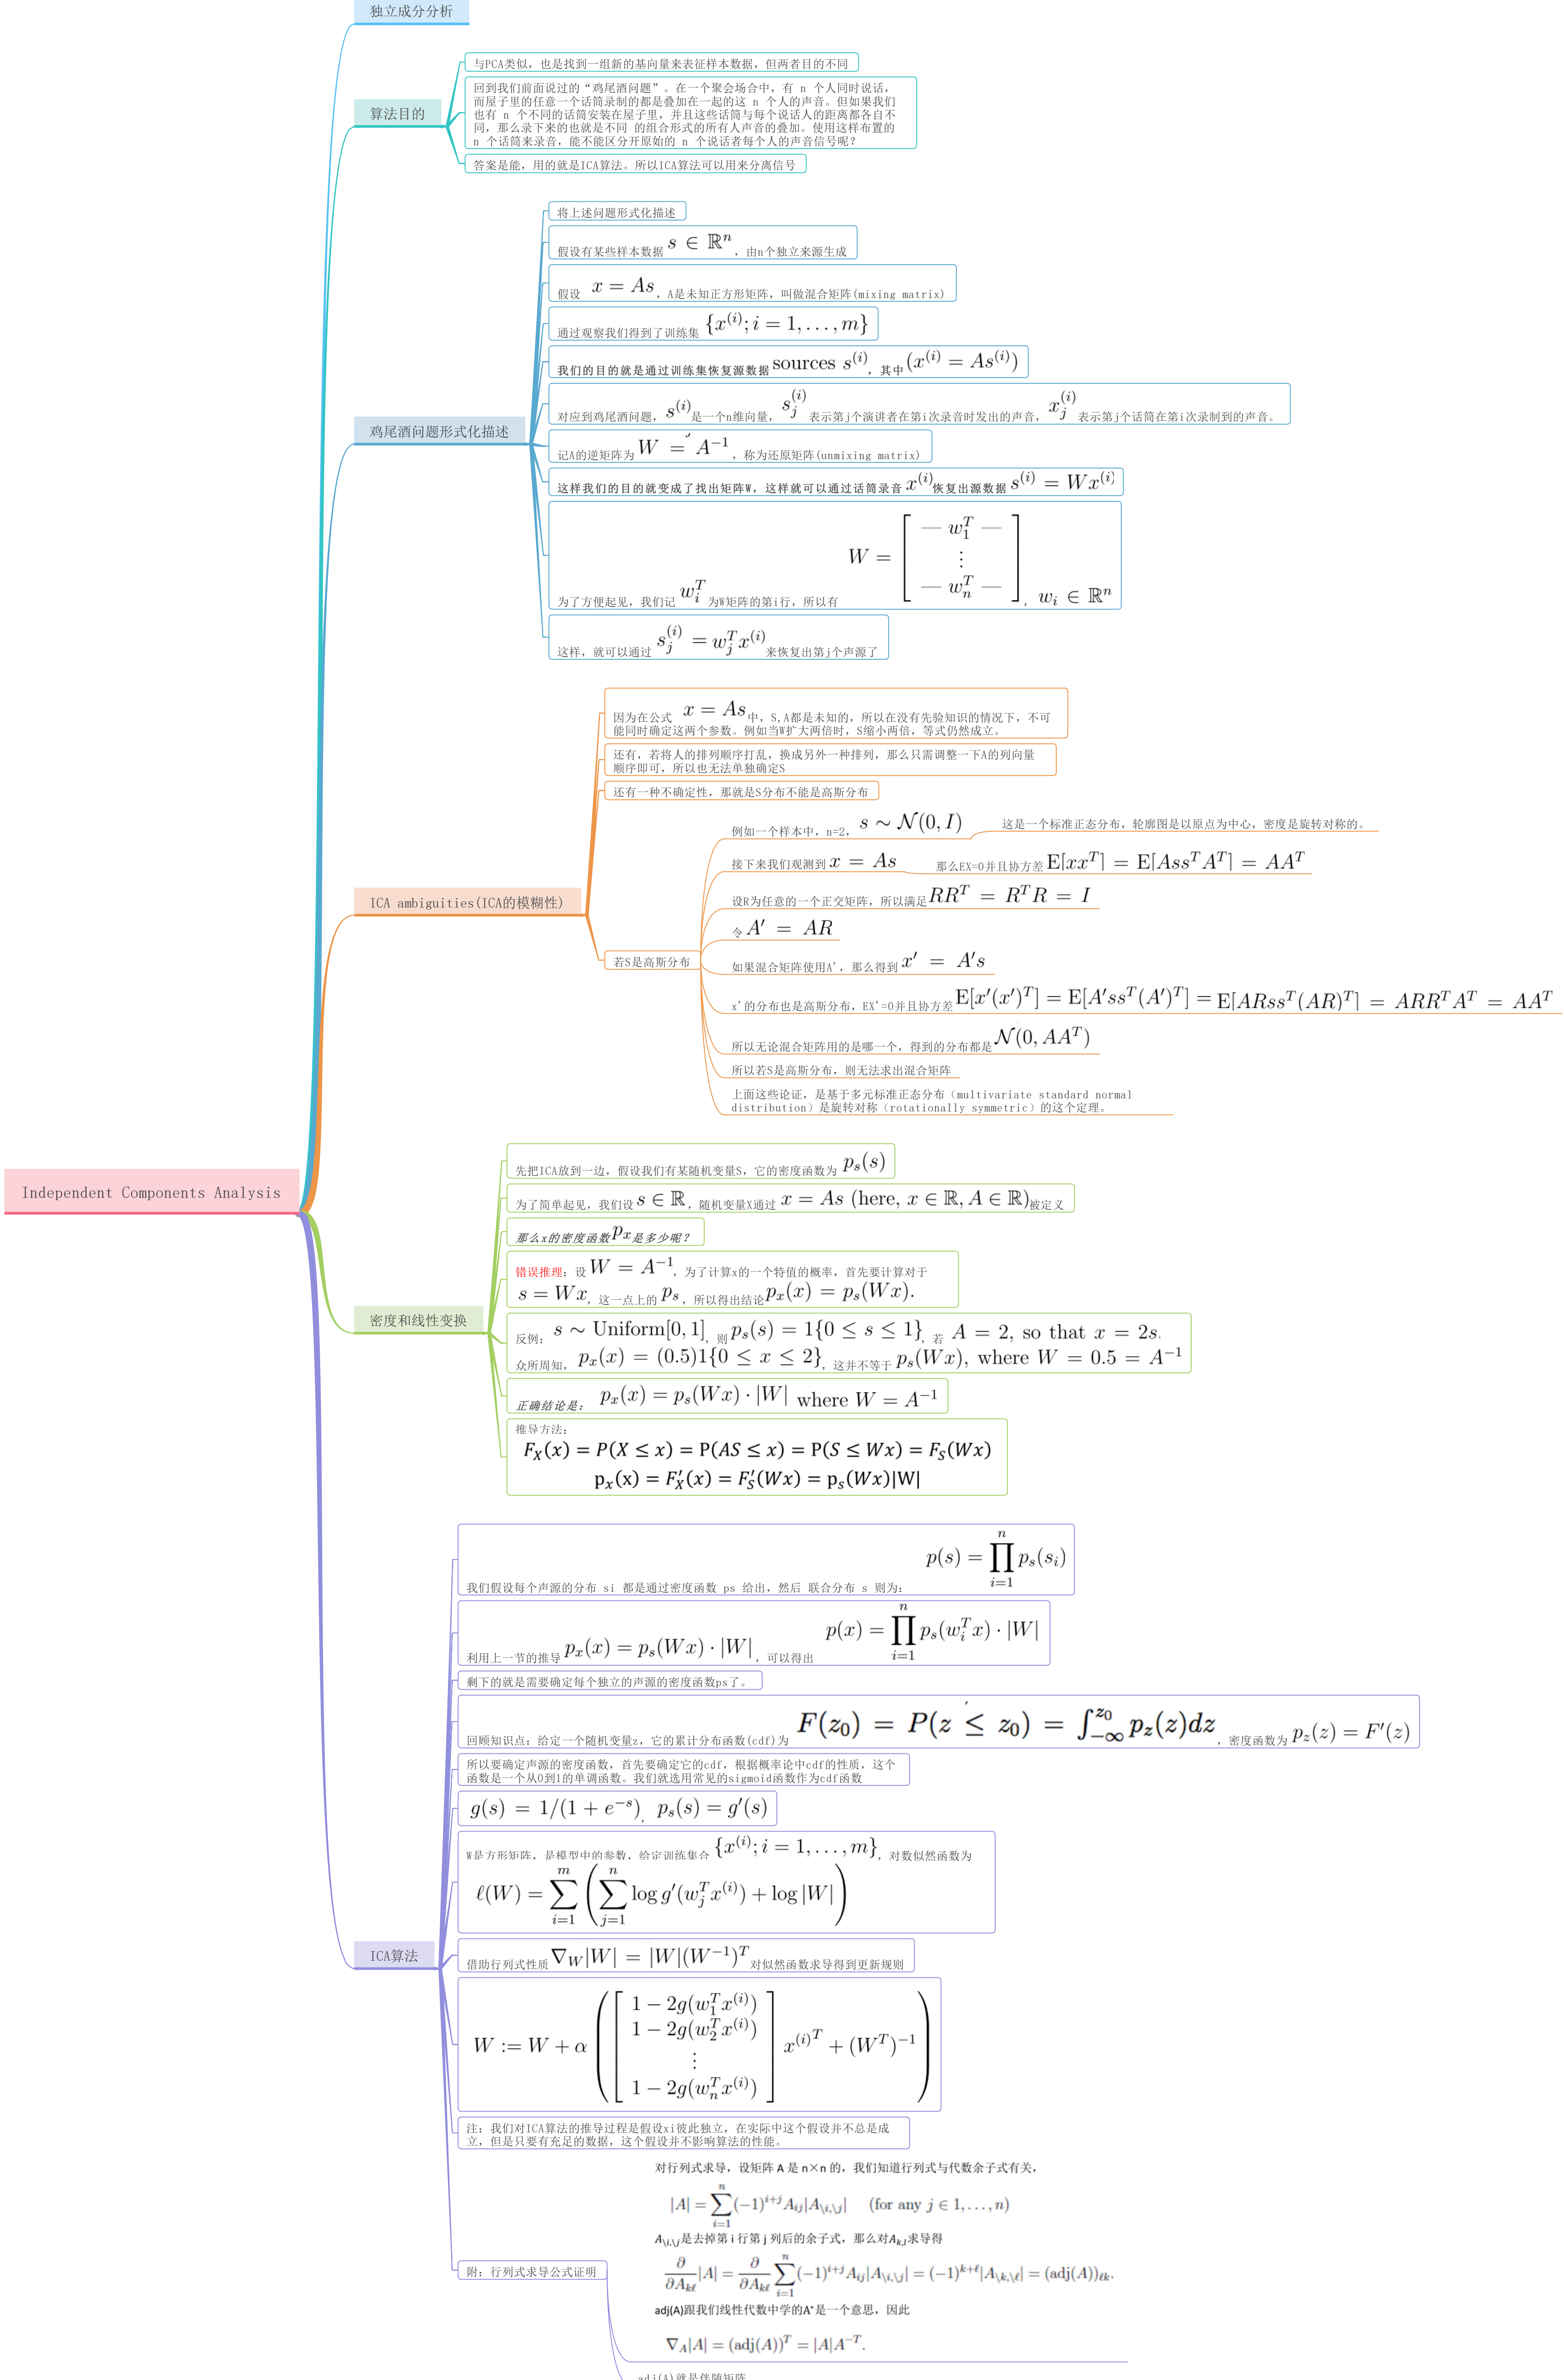 独立成分分析
算法目的
与PCA类似，也是找到一组新的基向量来表征样本数据，但两者目的不同
回到我们前面说过的“鸡尾酒问题”。在一个聚会场合中，有 n 个人同时说话，
而屋子里的任意一个话筒录制的都是叠加在一起的这 n 个人的声音。但如果我们
也有 n 个不同的话筒安装在屋子里，并且这些话筒与每个说话人的距离都各自不
同，那么录下来的也就是不同 的组合形式的所有人声音的叠加。使用这样布置的
n 个话筒来录音，能不能区分开原始的 n 个说话者每个人的声音信号呢？
答案是能，用的就是ICA算法。所以ICA算法可以用来分离信号
鸡尾酒问题形式化描述
将上述问题形式化描述
假设有某些样本数据 s ∈ ℝⁿ ，由n个独立来源生成
假设 x = As，A是未知正方形矩阵，叫做混合矩阵(mixing matrix)
通过观察我们得到了训练集 {x^(i); i = 1, . . . , m}
我们的目的就是通过训练集恢复源数据 sources s^(i)，其中 (x^(i) = As^(i))
对应到鸡尾酒问题，s^(i)是一个n维向量，s_j^(i) 表示第j个演讲者在第i次录音时发出的声音，x_j^(i) 表示第j个话筒在第i次录制到的声音。
记A的逆矩阵为 W = A^−1 ，称为还原矩阵(unmixing matrix)
这样我们的目的就变成了找出矩阵W，这样就可以通过话筒录音 x^(i)恢复出源数据 s^(i) = Wx^(i)
为了方便起见，我们记 w_i^T 为W矩阵的第i行，所以有 W = [ — w_1^T — ⋮ — w_n^T — ]，w_i ∈ ℝⁿ
这样，就可以通过 s_j^(i) = w_j^T x^(i)来恢复出第j个声源了
ICA ambiguities(ICA的模糊性)
因为在公式 x = As中，S,A都是未知的，所以在没有先验知识的情况下，不可
能同时确定这两个参数。例如当W扩大两倍时，S缩小两倍，等式仍然成立。
还有，若将人的排列顺序打乱，换成另外一种排列，那么只需调整一下A的列向量
顺序即可，所以也无法单独确定S
还有一种不确定性，那就是S分布不能是高斯分布
若S是高斯分布
例如一个样本中，n=2， s ∼ 𝒩(0, I)
这是一个标准正态分布，轮廓图是以原点为中心，密度是旋转对称的。
接下来我们观测到 x = As
那么EX=0并且协方差 E[xx^T] = E[Ass^T A^T] = AA^T
设R为任意的一个正交矩阵，所以满足RR^T = R^T R = I
令 A′ = AR
如果混合矩阵使用A'，那么得到 x′ = A′s
x'的分布也是高斯分布，EX'=0并且协方差 E[x′(x′)^T] = E[A′ss^T(A′)^T] = E[ARss^T(AR)^T] = ARR^T A^T = AA^T
所以无论混合矩阵用的是哪一个，得到的分布都是 𝒩(0, AA^T)
所以若S是高斯分布，则无法求出混合矩阵
上面这些论证，是基于多元标准正态分布（multivariate standard normal
distribution）是旋转对称（rotationally symmetric）的这个定理。
Independent Components Analysis
密度和线性变换
先把ICA放到一边，假设我们有某随机变量S，它的密度函数为 p_s(s)
为了简单起见，我们设 s ∈ ℝ，随机变量X通过 x = As (here, x ∈ ℝ, A ∈ ℝ)被定义
那么x的密度函数 p_x 是多少呢？
错误推理：设 W = A^−1，为了计算x的一个特值的概率，首先要计算对于
s = Wx，这一点上的 p_s ，所以得出结论 p_x(x) = p_s(Wx).
反例： s ∼ Uniform[0, 1]，则 p_s(s) = 1{0 ≤ s ≤ 1}，若 A = 2, so that x = 2s.
众所周知， p_x(x) = (0.5)1{0 ≤ x ≤ 2}，这并不等于 p_s(Wx), where W = 0.5 = A^−1
正确结论是： p_x(x) = p_s(Wx) · |W| where W = A^−1
推导方法：
F_X(x) = P(X ≤ x) = P(AS ≤ x) = P(S ≤ Wx) = F_S(Wx)
p_x(x) = F′_X(x) = F′_S(Wx) = p_s(Wx)|W|
ICA算法
我们假设每个声源的分布 si 都是通过密度函数 ps 给出，然后 联合分布 s 则为： p(s) = ∏_{i=1}^n p_s(s_i)
利用上一节的推导 p_x(x) = p_s(Wx) · |W| ，可以得出 p(x) = ∏_{i=1}^n p_s(w_i^T x) · |W|
剩下的就是需要确定每个独立的声源的密度函数ps了。
回顾知识点：给定一个随机变量z，它的累计分布函数(cdf)为 F(z_0) = P(z ≤ z_0) = ∫_{−∞}^{z_0} p_z(z)dz ，密度函数为 p_z(z) = F′(z)
所以要确定声源的密度函数，首先要确定它的cdf，根据概率论中cdf的性质，这个
函数是一个从0到1的单调函数。我们就选用常见的sigmoid函数作为cdf函数
g(s) = 1/(1 + e^−s)， p_s(s) = g′(s)
W是方形矩阵，是模型中的参数，给定训练集合 {x^(i); i = 1, . . . , m}，对数似然函数为
ℓ(W) = ∑_{i=1}^m ( ∑_{j=1}^n log g′(w_j^T x^(i)) + log |W| )
借助行列式性质 ∇_W|W| = |W|(W^−1)^T 对似然函数求导得到更新规则
W := W + α ( [ 1 − 2g(w_1^T x^(i))
1 − 2g(w_2^T x^(i))
⋮
1 − 2g(w_n^T x^(i)) ] x^(i)^T + (W^T)^−1 )
注：我们对ICA算法的推导过程是假设xi彼此独立，在实际中这个假设并不总是成
立，但是只要有充足的数据，这个假设并不影响算法的性能。
附：行列式求导公式证明
对行列式求导，设矩阵 A 是 n×n 的，我们知道行列式与代数余子式有关，
|A| = ∑_{i=1}^n (−1)^{i+j} A_ij |A_\i,\j| (for any j ∈ 1, . . . , n)
A_\i,\j是去掉第 i 行第 j 列后的余子式，那么对A_k,l求导得
∂/∂A_kℓ |A| = ∂/∂A_kℓ ∑_{i=1}^n (−1)^{i+j} A_ij |A_\i,\j| = (−1)^{k+ℓ} |A_\k,\ℓ| = (adj(A))_ℓk.
adj(A)跟我们线性代数中学的A*是一个意思，因此
∇_A|A| = (adj(A))^T = |A|A^−T.
adj(A)就是伴随矩阵